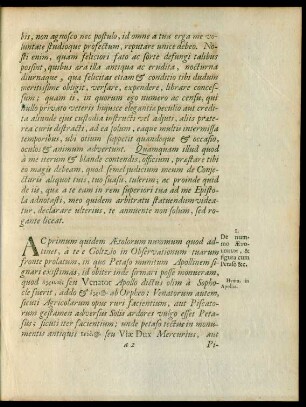 bit, non agnosco nec postulo, id omne a tua erga me vo-
luntate studioque profectum, reputare unice debeo. No-
sti enim, quam feliciori fato ac sorte defungi talibus
possint, quibus ara illa antiqua ac erudita, nocturna
diurnaque, qua felicitas etiam & conditio tibi dudum
meritissime obtigit, versare, expendere, librare conces-
sum; quam ii, in quorum ego numero ac censu, qui
nullo privato veteris hujusce elegantis peculio aut credi-
ta aliunde ejus custodia instructi vel adjuti, aliis praete-
rea curis districti, ad ea solum, eaque multis intermissa
temporibus, ubi otium suppetit quandoque & occasio,
oculos & animum advertunt. Quamquam illud quod
à me iterum & blande contendis, officium, praestare tibi
eo magis debeam, quod semel judicium meum de Conje-
ctariis aliquot tuis, tuo suasu, tulerim; ac proinde quid
de iis, qua a te eam in rem superiori tua ad me Episto-
la adnotasti, meo quidem arbitratu statuendum videa-
tur, declarare ulterius, te annuente non solum, sed ro-
gante liceat.
AC primum quidem Ætolorum nummum quod ad-
tinet, a te è Goltzio in Observationum tuarum
fronte prolatum, in quo Petaso munitum Apollinem si-
gnari existimas, id obiter inde firmari posse monueram,
quod seu Venator Apollo dictus olim à Sopho-
cle fuerit, addo & ab Orpheo; Venatorum autem,
sicuti Agricolarum opus rure facientium, aut Piscato-
rum gestamen adversus Solis ardores vulgo esset Peta-
sus; sicuti iter facientium; unde petaso tectus in monu-
mentis antiquis seu VIÆ DUX Mercurius, aut
I.
De num-
mo Æto-
lorum, &
figura cum
Petaso &c.
Hymn. in
Apollin.
a 2
Pi-